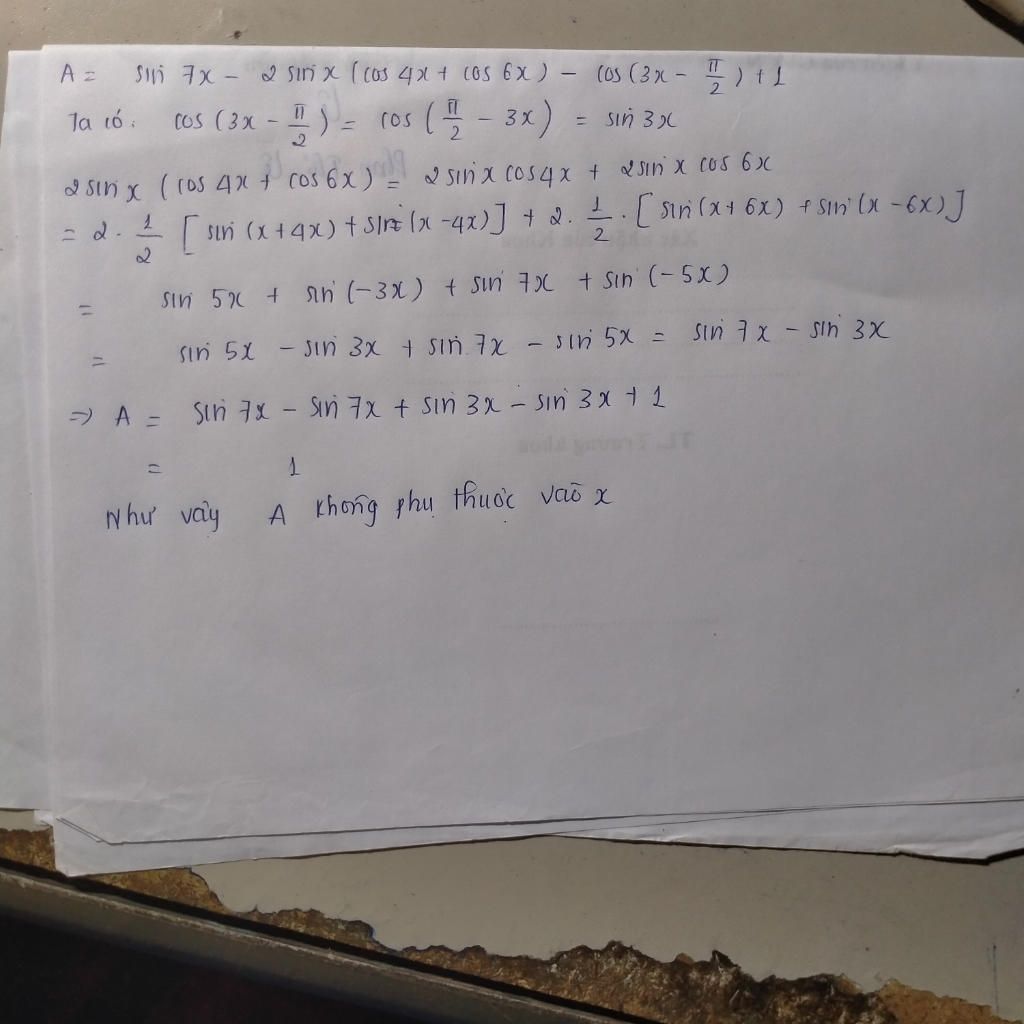 A = sin 7x - 2 sin x (cos 4x + cos 6x) - cos (3x - π/2) + 1
Ta có: cos (3x - π/2) = cos (π/2 - 3x) = sin 3x
2 sin x (cos 4x + cos 6x) = 2 sin x cos 4x + 2 sin x cos 6x
= 2 . 1/2 [ sin (x + 4x) + sin (x - 4x) ] + 2 . 1/2 . [ sin (x + 6x) + sin (x - 6x) ]
= sin 5x + sin (-3x) + sin 7x + sin (-5x)
= sin 5x - sin 3x + sin 7x - sin 5x = sin 7x - sin 3x
=> A = sin 7x - sin 7x + sin 3x - sin 3x + 1
= 1
Như vậy A không phụ thuộc vào x